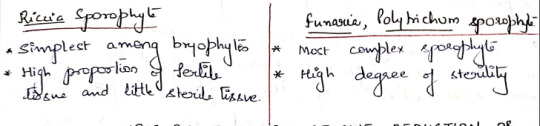 Riccia Sporophyte
* Simplest among bryophytes
* High proportion of fertile
tissue and little sterile tissue.
Funaria, Polytrichum sporophyte
* Most complex sporophyte
* High degree of sterility
REDUCTION OF